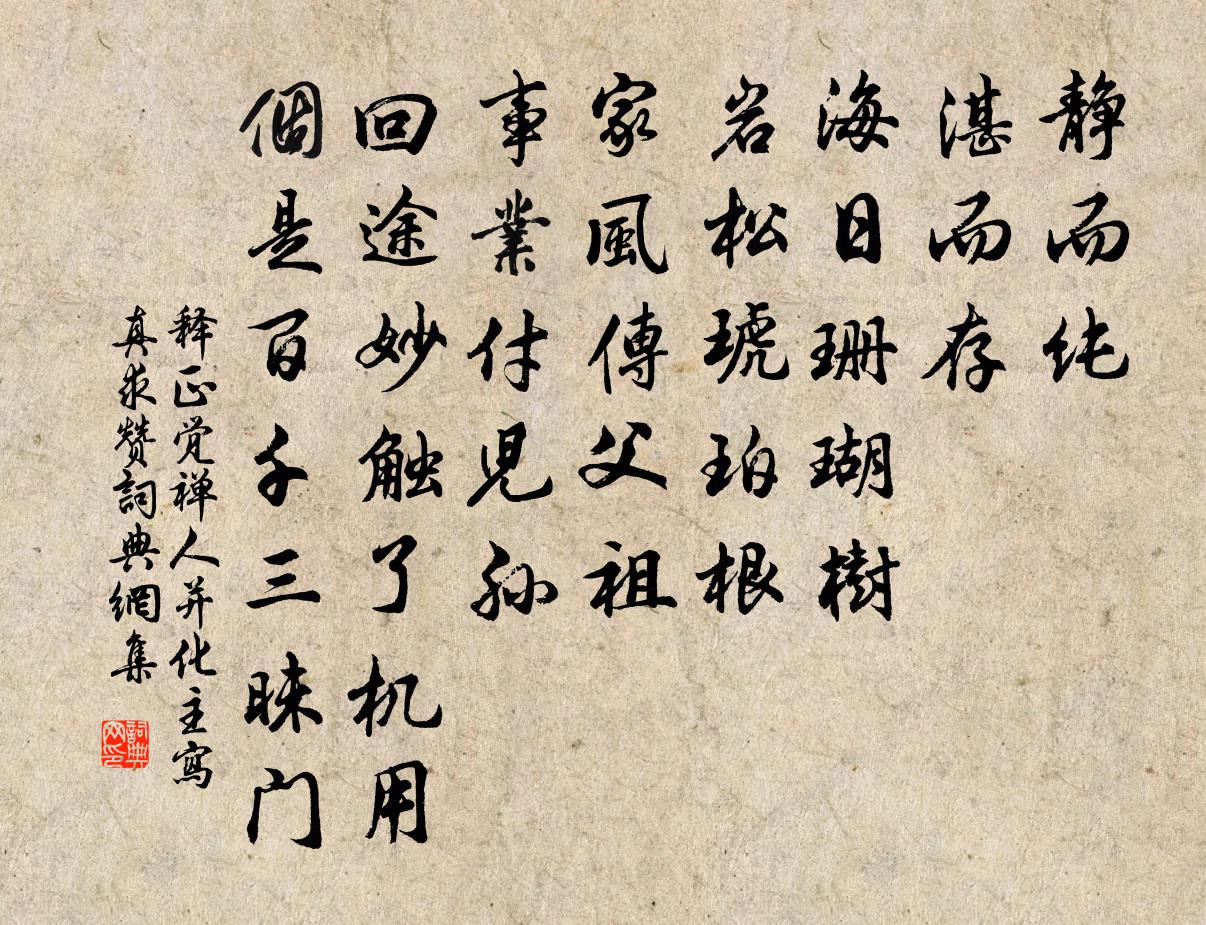 静而纯
湛而存
海日珊瑚樹
岩松琥珀根
家風傳父祖
事業付児孙
回途妙触了机用
個是百千三昧门
释正觉禅人并化主寫
真求赞詞典網集
詞典